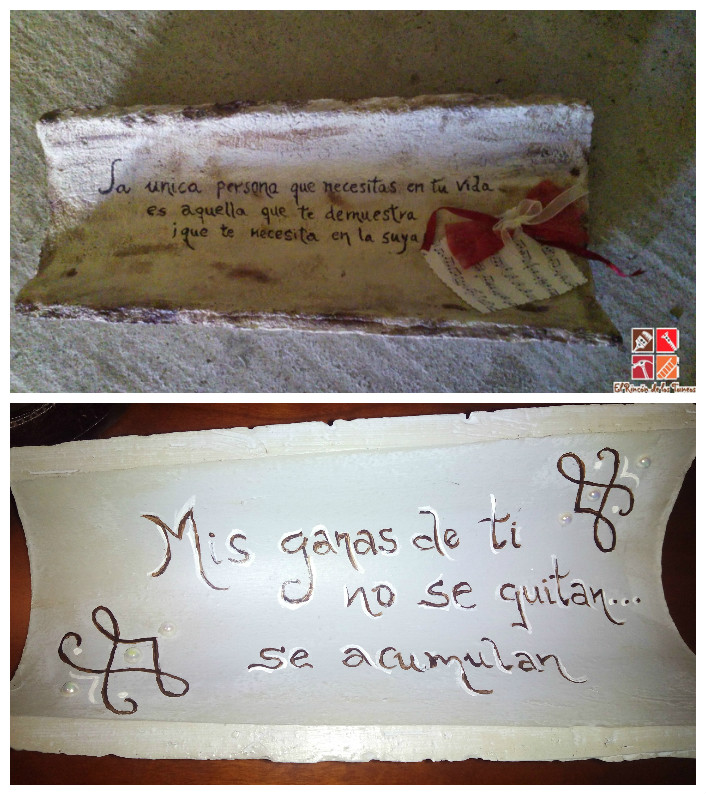 La unica persona que necesitas en tu vida
es aquella que te demuestra
¡que te necesita en la suya
Mis ganas de ti
no se quitan...
se acumulan
El Rincón de las Tuneas